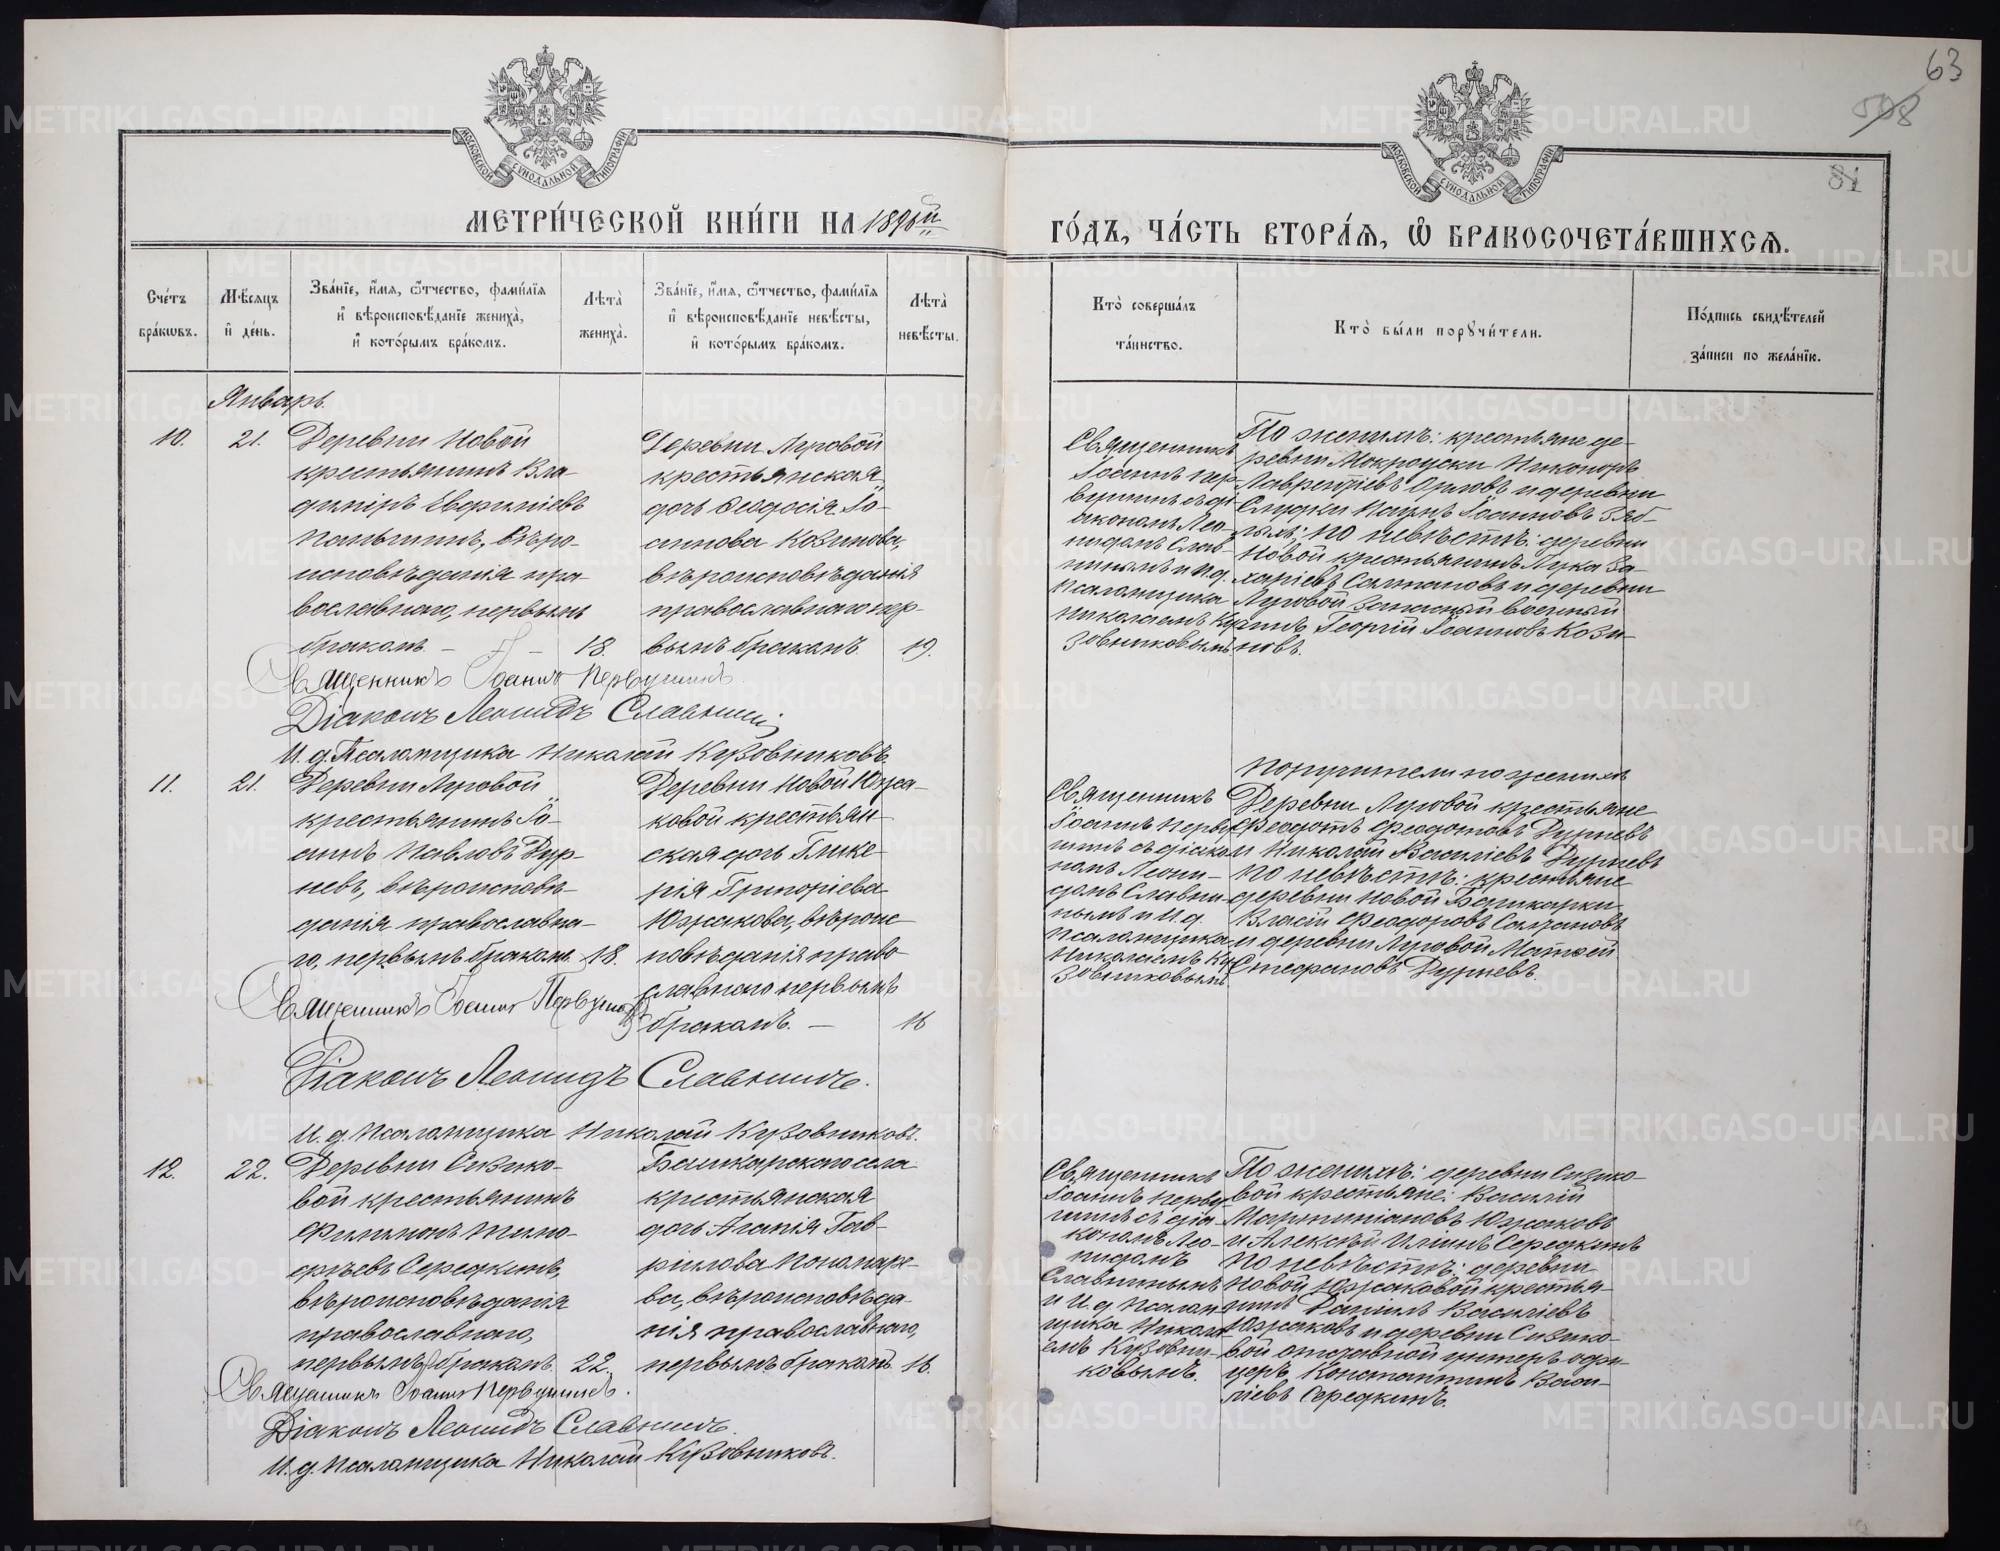 63
508
81
МОСКОВСКОЙ СѴНОДАЛЬНОЙ ТИПОГРАФІИ
МОСКОВСКОЙ СѴНОДАЛЬНОЙ ТИПОГРАФІИ
МЕТРИ́ЧЕСКОЙ КНИ́ГИ НА 1896й
ГО́ДЪ, ЧА́СТЬ ВТОРА́Я, Ѡ БРАКОСОЧЕТА́ВШИХСЯ.
Сче́тъ
бра́кѡвъ.
Мѣ́сяцъ
и҆ де́нь.
Зва́нїе, и҆́мя, ѻ҆́тчество, фами́лїя
и҆ вѣроисповѣ́данїе жениха̀,
и҆ кото́рымъ бра́комъ.
Лѣта̀
жениха̀.
Зва́нїе, и҆́мя, ѻ҆́тчество, фами́лїя
и҆ вѣроисповѣ́данїе невѣ́сты,
и҆ кото́рымъ бра́комъ.
Лѣта̀
невѣ́сты.
Кто̀ соверша́лъ
та́инство.
Кто̀ бы́ли порꙋчи́тели.
По́дпись свидѣ́телей
за́писи по жела́нїю.
Январь.
10.
21.
Деревни Новой
крестьянинъ Вла-
диміръ Евфиміевъ
Паньшинъ, вѣро-
исповѣданія пра-
вославнаго, первымъ
бракомъ —
18.
Деревни Луговой
крестьянская
дочь Ѳеодосія Іо-
аннова Козинова,
вѣроисповѣданія
православнаго пер-
вымъ бракомъ.
19.
Священникъ
Іоаннъ Пер-
вушинъ съ ді-
акономъ Лео-
нидомъ Слав-
нинымъ и И.д.
Псаломщика
Николаемъ Ку-
зовниковымъ
По женихѣ: крестьяне де-
ревни Мокроуски Никаноръ
Лаврентіевъ Орловъ и деревни
Слудки Наумъ Іоанновъ Зяб-
лыхъ; по невѣстѣ: деревни
Новой крестьянинъ Лука За-
харіевъ Салтановъ и деревни
Луговой Запасный военный
чинъ Георгій Іоанновъ Кози-
новъ.
Священникъ Іоаннъ Первушинъ.
Діаконъ Леонидъ Славнинъ
И.д. Псаломщика Николай Кузовниковъ.
11.
21.
Деревни Луговой
крестьянинъ Іо-
аннъ Павловъ Дур-
невъ, вѣроисповѣ-
данія православна-
го, первымъ бракомъ
18.
Деревни Новой Южа-
ковой крестьян-
ская дочь Глике-
рія Григоріева
Южакова, вѣроис-
повѣданія право-
славнаго первымъ
бракомъ. —
16
Священникъ
Іоаннъ Перву-
шинъ съ діако-
номъ Леони-
домъ Славни-
нымъ и И.д.
Псаломщика
Николаемъ Ку-
зовниковымъ
Поручители по женихѣ
Деревни Луговой крестьяне
Ѳеодотъ Ѳеодотовъ Дурневъ
и Николай Василіевъ Дурневъ
По невѣстѣ: крестьяне
деревни Новой Башкарки
Власій Ѳеодоровъ Салтановъ
и деревни Луговой Матѳей
Стефановъ Дурневъ.
Священникъ Іоаннъ Первушинъ
Діаконъ Леонидъ Славнинъ.
И.д. Псаломщика Николай Кузовниковъ.
12.
22.
Деревни Сизико-
вой крестьянинъ
Филимонъ Тимо-
ѳѣевъ Середкинъ,
вѣроисповѣданія
православнаго,
первымъ бракомъ.
22.
Башкарскаго села
крестьянская
дочь Агапія Гав-
рилова Пономаре-
ва, вѣроисповѣда-
нія православнаго,
первымъ бракомъ
16.
Священникъ
Іоаннъ Перву-
шинъ съ діа-
кономъ Лео-
нидомъ
Славнинымъ
и И.д. Псалом-
щика Никола-
емъ Кузовни-
ковымъ.
По женихѣ: деревни Сизико-
вой крестьяне: Василій
Мартиніановъ Южаковъ
и Алексѣй Иліинъ Середкинъ
По невѣстѣ: деревни
Новой Южаковой крестья-
нинъ Даніилъ Василіевъ
Южаковъ и деревни Сизико-
вой отставной унтеръ-офи-
церъ Константинъ Васи-
ліевъ Середкинъ.
Священникъ Іоаннъ Первушинъ.
Діаконъ Леонидъ Славнинъ.
И.д. Псаломщика Николай Кузовниковъ.